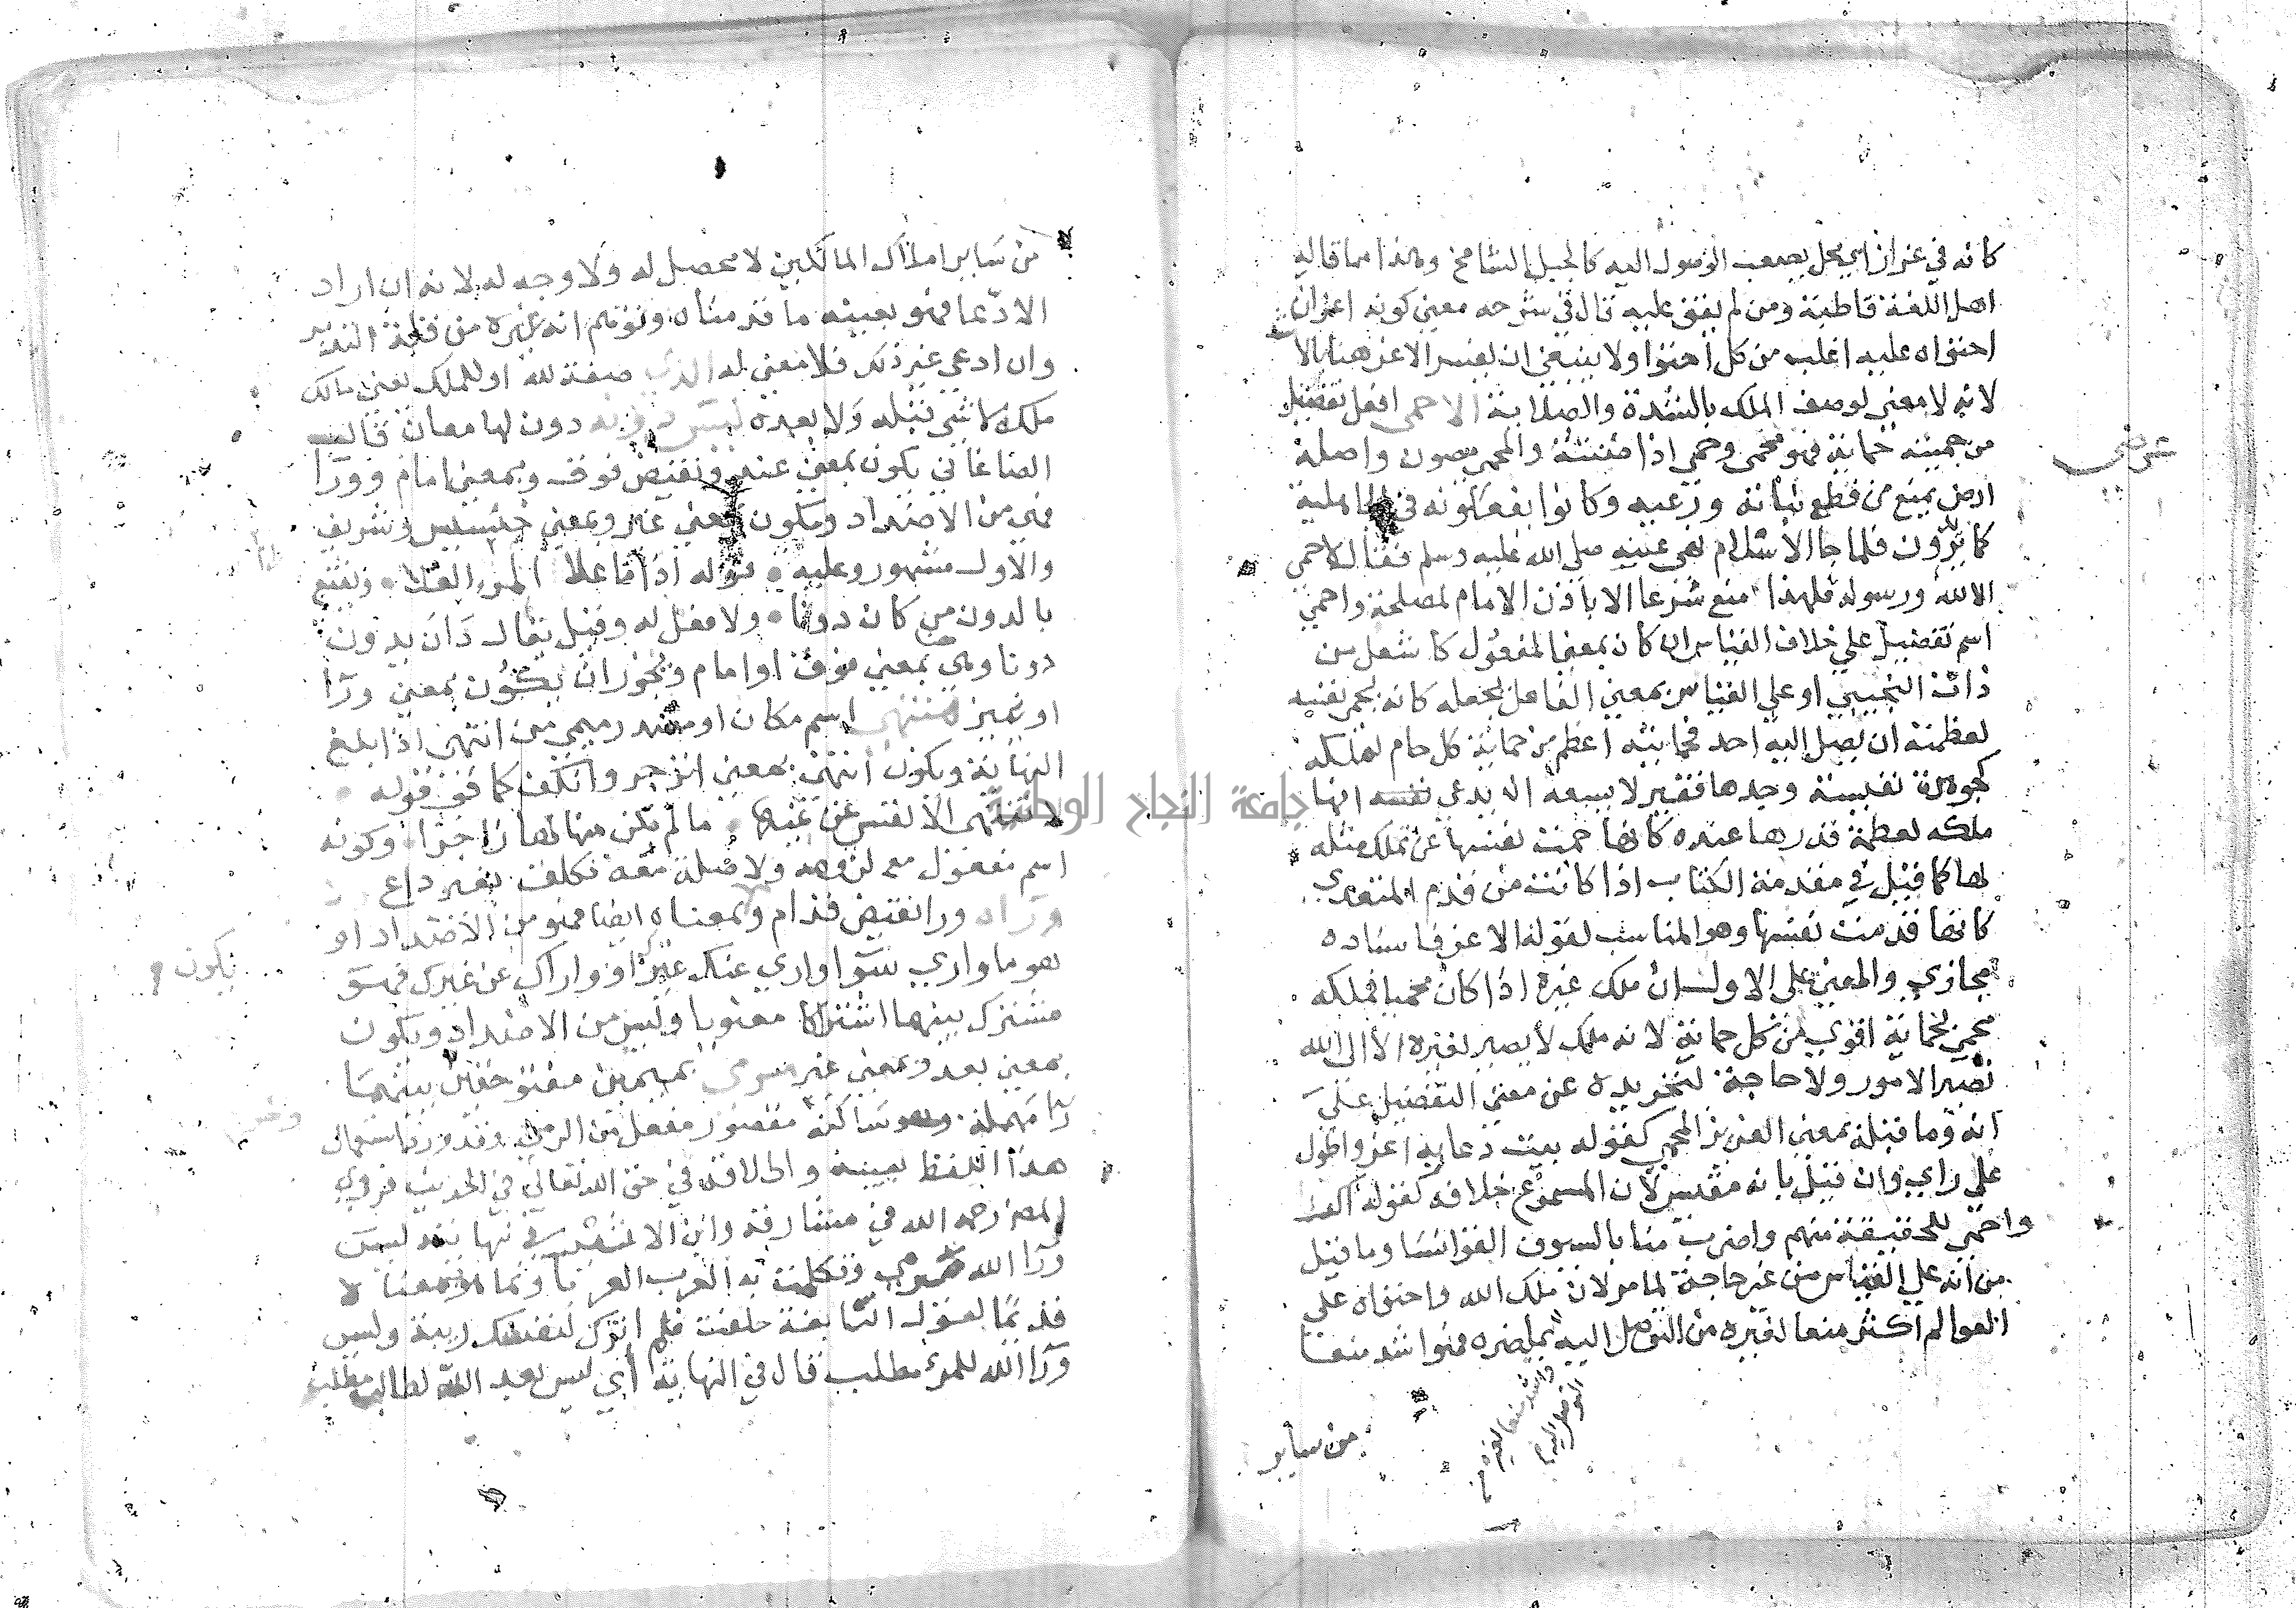 كانه في عزاز اي محل يصعب الوصول اليه كالجبل الشامخ وهذا مما قاله
اهل اللغة قاطبة ومن لم يقف عليه قال في شرحه معنى كونه اعز ان
احتواه عليه اغلب من كل احتوا ولا ينبغي ان يفسر الاعز هنا بالا
لانه لا معنى لوصف الملك بالشدة والصلابة الاحمى افعل تفضيل
من حميته حماية فهو محمى وحمى اذا صنته والمحمى مصون واصله
ارض يمنع من قطع نباته ورعيه وكانوا يفعلونه في الجاهلية
كما يرون فلما جا الاسلام نهى عنه صلى الله عليه وسلم فقال لا حمى
الا لله ورسوله فلهذا منع شرعا الا باذن الامام لمصلحة واحمى
اسم تفضيل على خلاف القياس ان كان بمعنى المفعول كاشغل من
ذات النحيين او على القياس بمعنى الفاعل بجعله كانه يحمى نفسه
لعظمته ان يصل اليه احد فحمايته اعظم من حماية كل حام لملكه
كجوهرة نفيسة وجدها فقير لا يسعه ان يدعي نفسه انها
ملكه لعظمة قدرها عنده كانها حمت نفسها عن تملك مثله
لها كما قيل في مقدمة الكتاب اذا كانت من قدم المتعدي
كانها قدمت نفسها وهو المناسب لقوله الاعز فاسناده
مجازي والمعنى على الاول ان ملك غيره اذا كان محميا فملكه
محمى بحماية اقوى من كل حماية لانه ملك لا يصير لغيره الا الى الله
تصير الامور ولا حاجة لتجريده عن معنى التفضيل على
انه وما قبله بمعنى العزيز المحمى كقوله بيت دعايمه اعز واطول
على راي وان قيل بانه مقيس لان المسموع خلافه كقوله اكر
واحمى للحقيقة منهم واضرب منا بالسيوف القوانسا وما قيل
من انه على القياس من غير حاجة لما مر لان ملك الله واحتواه على
العوالم اكثر منعا لغيره من التوصل اليه بما يضره فهو اشد منعا
واشد منعا لغيره من
التوصل اليه
من ساير
من ساير املاك المالكين لا محصل له ولا وجه له لانه ان اراد
الادعا فهو بعينه ما قدمناه وتوهم انه غيره من قلة التدبر
وان ادعى غير ذلك فلا معنى له الذي صفة لله او للملك يعني مالك
ملك لا شي قبله ولا بعده ليس دونه دون لها معان قال
الصاغاني يكون بمعنى عند ونقيض فوق وبمعنى امام وورا
فهي من الاضداد ويكون بمعنى غير وبمعنى خسيس وشريف
والاول مشهور وعليه قوله اذا ما علا المرء العلاء ويقنع
بالدون من كان دونا ولا فعل له وقيل يقال دان يدون
دونا وهي بمعنى فوق او امام ويجوز ان يكون بمعنى ورا
او غير منتهى اسم مكان او مصدر ميمي من انتهى اذا بلغ
النهاية ويكون انتهى بمعنى انزجر وانكف كما في قوله
لا تنتهي الانفس عن غيها ما لم يكن منها لها زاجرا وكونه
اسم مفعول مع لزومه ولا صلة معه تكلف بغير داع
وراه ورا نقيض قدام وبمعناه ايضا فهو من الاضداد او
يكون
هو ما وارى سوا وارى عنك غيرك او واراك عن غيرك فهو
مشترك بينهما اشتراكا معنويا وليس من الاضداد ويكون
بمعنى بعد وبمعنى غير مرمى بميمين مفتوحتين بينهما
را مهملة وهو ساكنة مقصور مفعل من الرمي وقد ورد استعمال
هذا اللفظ بعينه واطلاقه في حق الله تعالى في الحديث فروى
المصر رحمه الله في مشارقه وابن الاثير في نهايته ليس
ورا الله مرمى وتكلمت به العرب العربا وما هو بمعناه
قديما لقول النابغة حلفت فلم اترك لنفسك ريبة وليس
ورا الله للمرء مطلب قال في النهاية اي ليس بعد الله لطالب مطلب
جامعة النجاح الوطنية